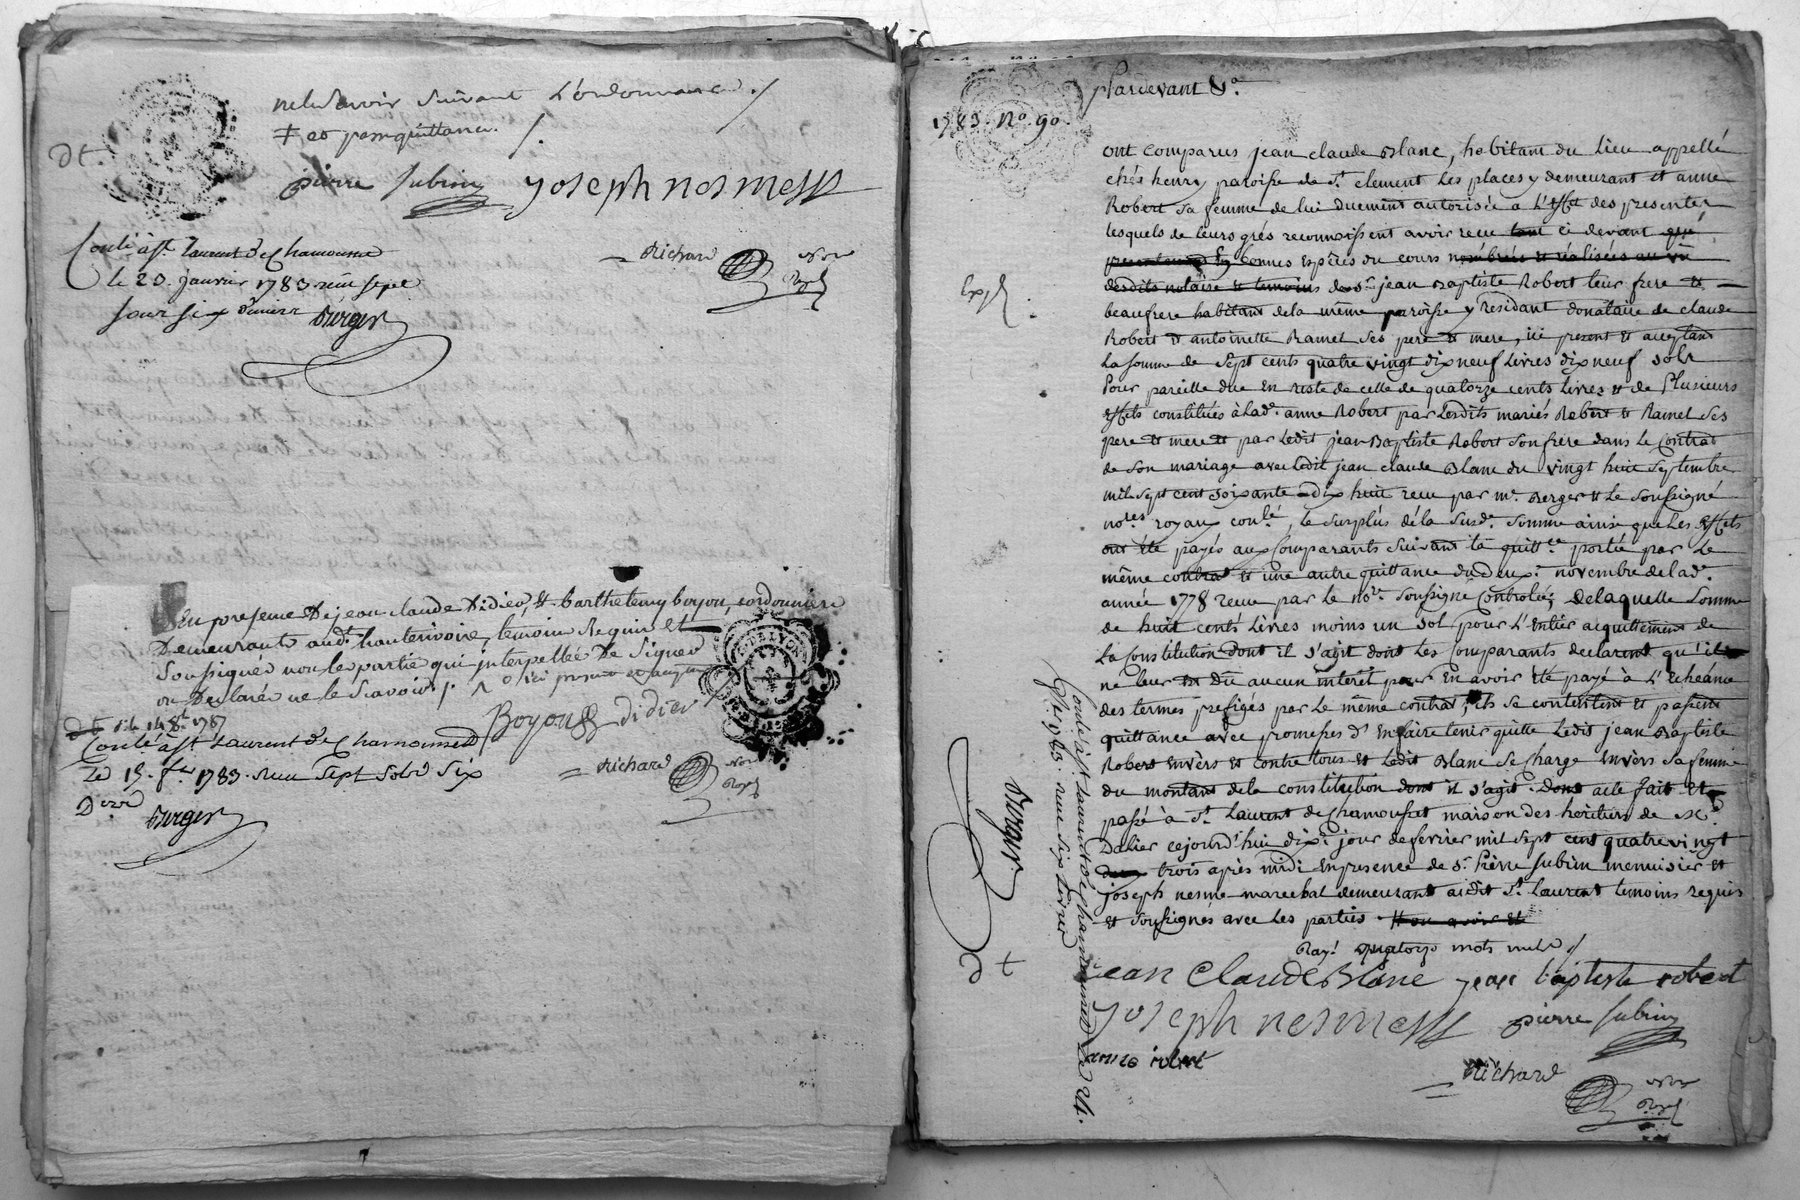 ne le scavoir suivant L'ordonnance ./
‡ et pour quittance ./
dt.
pierre subrin joseph nesme
Conlé à St. Laurent de Chamousset
Le 23. janvier 1783 reçu sept
sous six deniers Berger
Richard Nore Royl
En presence de jean claude Didier, et barthelemy boyon, cordonnier
Demeurants aud. hauterivoire, temoins Requis et
Soussignés non les partie qui interpellée De Signer
ou Declarée ne le Scavoir ./.
dt le 14 8bre 1787
BOYON didier
Conlé à St Laurent de Chamousset
Le 15. fer 1783. reçu Sept Sols Six
Ders Berger
Richard Nore Royl
Pardevant &a.
1783. No. 90.
ont comparus jean claude Blanc, habitant du Lieu appellé
chés henry paroisse de St. clement Les places y demeurant et anne
Robert sa femme de lui duement autorisée à L'effet des presentes
Lesquels de leurs grés reconnoissent avoir recu tout ci devant que
presentement En bonnes Espèces du cours nombrées et réalisées au vû
desdits notaire et temoins de sr. jean Baptiste Robert leur frere et
Exp
beaufrere habitant dela même paroisse y residant donataire de claude
Robert et antoinette Ramel ses pere et mere, ici present et acceptant
La somme de Sept cents quatre vingt dix neuf Livres dix neuf sols
Pour pareille due En reste de celle de quatorze cents Livres et de Plusieurs
effets constitués à lad. anne Robert par Lesdits mariés Robert et Ramel Ses
pere et mere et par Ledit jean Baptiste Robert son frere dans Le Contrat
de Son mariage avec ledit jean claude Blanc du vingt huit Septembre
mil Sept cent soixante dix huit recu par me. Berger et Le soussigné
nores royaux conlé, le surplus de la susde. Somme ainsi que Les effets
ont été payés aux Comparants suivant la quittce portée par Le
même contrat et une autre quittance du deux. novembre de lad.
année 1778 recue par Le nore. Soussigné Controlée; de laquelle Somme
de huit cents Livres moins un Sol pour L'Entier acquittement de
La Constitution dont il s'agit dont Les Comparants declarent qu'il
ne leur est Dû aucun interêt pour En avoir été payé à L'Echéance
des termes prefigés par Le même contrat, ils se contentent et passent
quittance avec promesses d'En faire tenir quitte Ledit jean Baptiste
Robert Envèrs et contre tous et Ledit Blanc Se charge Envèrs sa femme
du montant de la constitution dont il s'agit. Dont acte fait et
passé à St. Laurent de Chamousset maison des heritiers de Me.
Dalier cejourd'hui dixe. jour de fevrier mil sept cent quatre vingt
deux trois après midi En presence de Sr. Pierre Subrin menuisier et
joseph nesme marechal demeurant audit St. Laurent temoins requis
et soussignés avec Les parties.
Rayé quatorze mots nuls ./
jean Claude Blanc jean baptiste robert
joseph nesme pierre subrin
anne robert
Richard Nore Royl
Conlé à St. Laurent de Chamousset Le 24.
fer 1783. reçu six Livres
Berger
dt